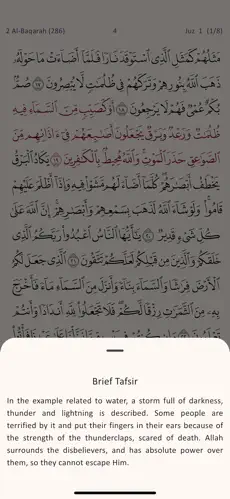 2 Al-Baqarah (286)
4
Juz 1 (1/8)
مَثَلُهُمْ كَمَثَلِ ٱلَّذِى ٱسْتَوْقَدَ نَارًا فَلَمَّآ أَضَآءَتْ مَا حَوْلَهُۥ
ذَهَبَ ٱللَّهُ بِنُورِهِمْ وَتَرَكَهُمْ فِى ظُلُمَـٰتٍ لَّا يُبْصِرُونَ ١٧ صُمٌّۢ
بُكْمٌ عُمْىٌ فَهُمْ لَا يَرْجِعُونَ ١٨ أَوْ كَصَيِّبٍ مِّنَ ٱلسَّمَآءِ فِيهِ
ظُلُمَـٰتٌ وَرَعْدٌ وَبَرْقٌ يَجْعَلُونَ أَصَـٰبِعَهُمْ فِىٓ ءَاذَانِهِم مِّنَ
ٱلصَّوَٰعِقِ حَذَرَ ٱلْمَوْتِ وَٱللَّهُ مُحِيطٌۢ بِٱلْكَـٰفِرِينَ ١٩ يَكَادُ ٱلْبَرْقُ
يَخْطَفُ أَبْصَـٰرَهُمْ كُلَّمَآ أَضَآءَ لَهُم مَّشَوْا۟ فِيهِ وَإِذَآ أَظْلَمَ عَلَيْهِمْ
قَامُوا۟ وَلَوْ شَآءَ ٱللَّهُ لَذَهَبَ بِسَمْعِهِمْ وَأَبْصَـٰرِهِمْ إِنَّ ٱللَّهَ عَلَىٰ
كُلِّ شَىْءٍ قَدِيرٌ ٢٠ يَـٰٓأَيُّهَا ٱلنَّاسُ ٱعْبُدُوا۟ رَبَّكُمُ ٱلَّذِى
خَلَقَكُمْ وَٱلَّذِينَ مِن قَبْلِكُمْ لَعَلَّكُمْ تَتَّقُونَ ٢١ ٱلَّذِى جَعَلَ لَكُمُ
ٱلْأَرْضَ فِرَٰشًا وَٱلسَّمَآءَ بِنَآءً وَأَنزَلَ مِنَ ٱلسَّمَآءِ مَآءً فَأَخْرَجَ
بِهِۦ مِنَ ٱلثَّمَرَٰتِ رِزْقًا لَّكُمْ فَلَا تَجْعَلُوا۟ لِلَّهِ أَندَادًا وَأَنتُمْ
Brief Tafsir
In the example related to water, a storm full of darkness,
thunder and lightning is described. Some people are
terrified by it and put their fingers in their ears because of
the strength of the thunderclaps, scared of death. Allah
surrounds the disbelievers, and has absolute power over
them, so they cannot escape Him.